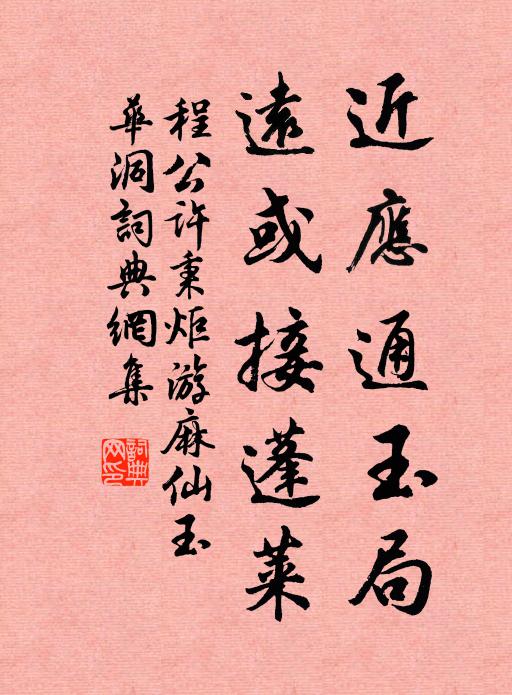 近應通玉局
遠或接蓬萊
程公許秉炬游麻仙玉
華洞詞典網集
詞典網印